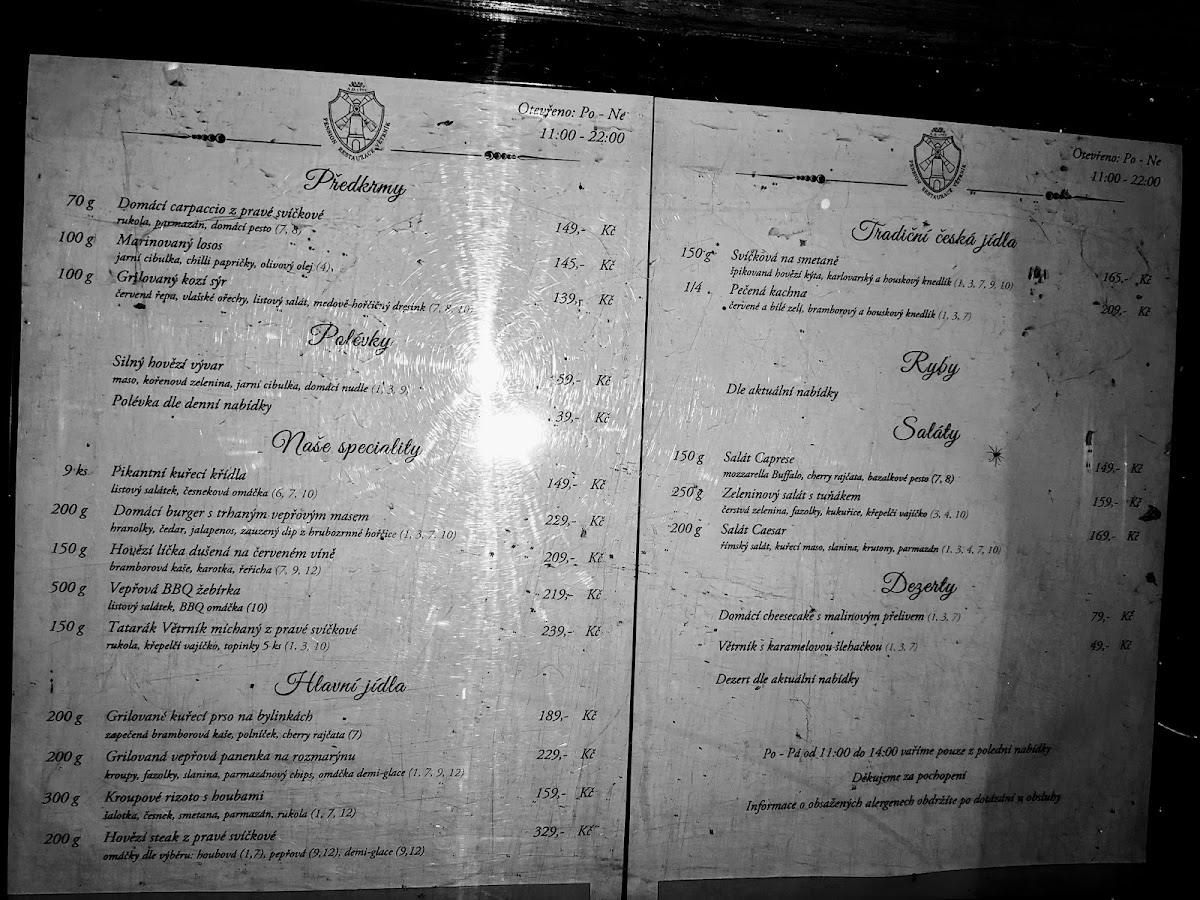 PENSION RESTAURACE VĚTRNÍK
Otevřeno: Po - Ne
11:00 - 22:00
Předkrmy
70 g Domácí carpaccio z pravé svíčkové 149,- Kč
rukola, parmazán, domácí pesto (7, 8)
100 g Marinovaný losos 145,- Kč
jarní cibulka, chilli papričky, olivový olej (4)
100 g Grilovaný kozí sýr 139,- Kč
červená řepa, vlašské ořechy, listový salát, medově-hořčičný dresink (7, 8, 10)
Polévky
Silný hovězí vývar 59,- Kč
maso, kořenová zelenina, jarní cibulka, domácí nudle (1, 3, 9)
Polévka dle denní nabídky 39,- Kč
Naše speciality
9 ks Pikantní kuřecí křídla 149,- Kč
listový salátek, česneková omáčka (6, 7, 10)
200 g Domácí burger s trhaným vepřovým masem 229,- Kč
hranolky, čedar, jalapenos, zauzený dip z hrubozrnné hořčice (1, 3, 7, 10)
150 g Hovězí líčka dušená na červeném víně 209,- Kč
bramborová kaše, karotka, řeřicha (7, 9, 12)
500 g Vepřová BBQ žebírka 219,- Kč
listový salátek, BBQ omáčka (10)
150 g Tatarák Větrník míchaný z pravé svíčkové 239,- Kč
rukola, křepelčí vajíčko, topinky 5 ks (1, 3, 10)
Hlavní jídla
200 g Grilované kuřecí prso na bylinkách 189,- Kč
zapečená bramborová kaše, polníček, cherry rajčata (7)
200 g Grilovaná vepřová panenka na rozmarýnu 229,- Kč
kroupy, fazolky, slanina, parmazánový chips, omáčka demi-glace (1, 7, 9, 12)
300 g Kroupové rizoto s houbami 159,- Kč
šalotka, česnek, smetana, parmazán, rukola (1, 7, 12)
200 g Hovězí steak z pravé svíčkové 329,- Kč
omáčky dle výběru: houbová (1,7), pepřová (9,12), demi-glace (9,12)
PENSION RESTAURACE VĚTRNÍK
Otevřeno: Po - Ne
11:00 - 22:00
Tradiční česká jídla
150 g Svíčková na smetaně 165,- Kč
špikovaná hovězí kýta, karlovarský a houskový knedlík (1, 3, 7, 9, 10)
1/4 Pečená kachna 209,- Kč
červené a bílé zelí, bramborový a houskový knedlík (1, 3, 7)
Ryby
Dle aktuální nabídky
Saláty
150 g Salát Caprese 149,- Kč
mozzarella Buffalo, cherry rajčata, bazalkové pesto (7, 8)
250 g Zeleninový salát s tuňákem 159,- Kč
čerstvá zelenina, fazolky, kukuřice, křepelčí vajíčko (3, 4, 10)
200 g Salát Caesar 169,- Kč
římský salát, kuřecí maso, slanina, krutony, parmazán (1, 3, 4, 7, 10)
Dezerty
Domácí cheesecake s malinovým přelivem (1, 3, 7) 79,- Kč
Větrník s karamelovou šlehačkou (1, 3, 7) 49,- Kč
Dezert dle aktuální nabídky
Po - Pá od 11:00 do 14:00 vaříme pouze z polední nabídky
Děkujeme za pochopení
Informace o obsažených alergenech obdržíte po dotázání u obsluhy